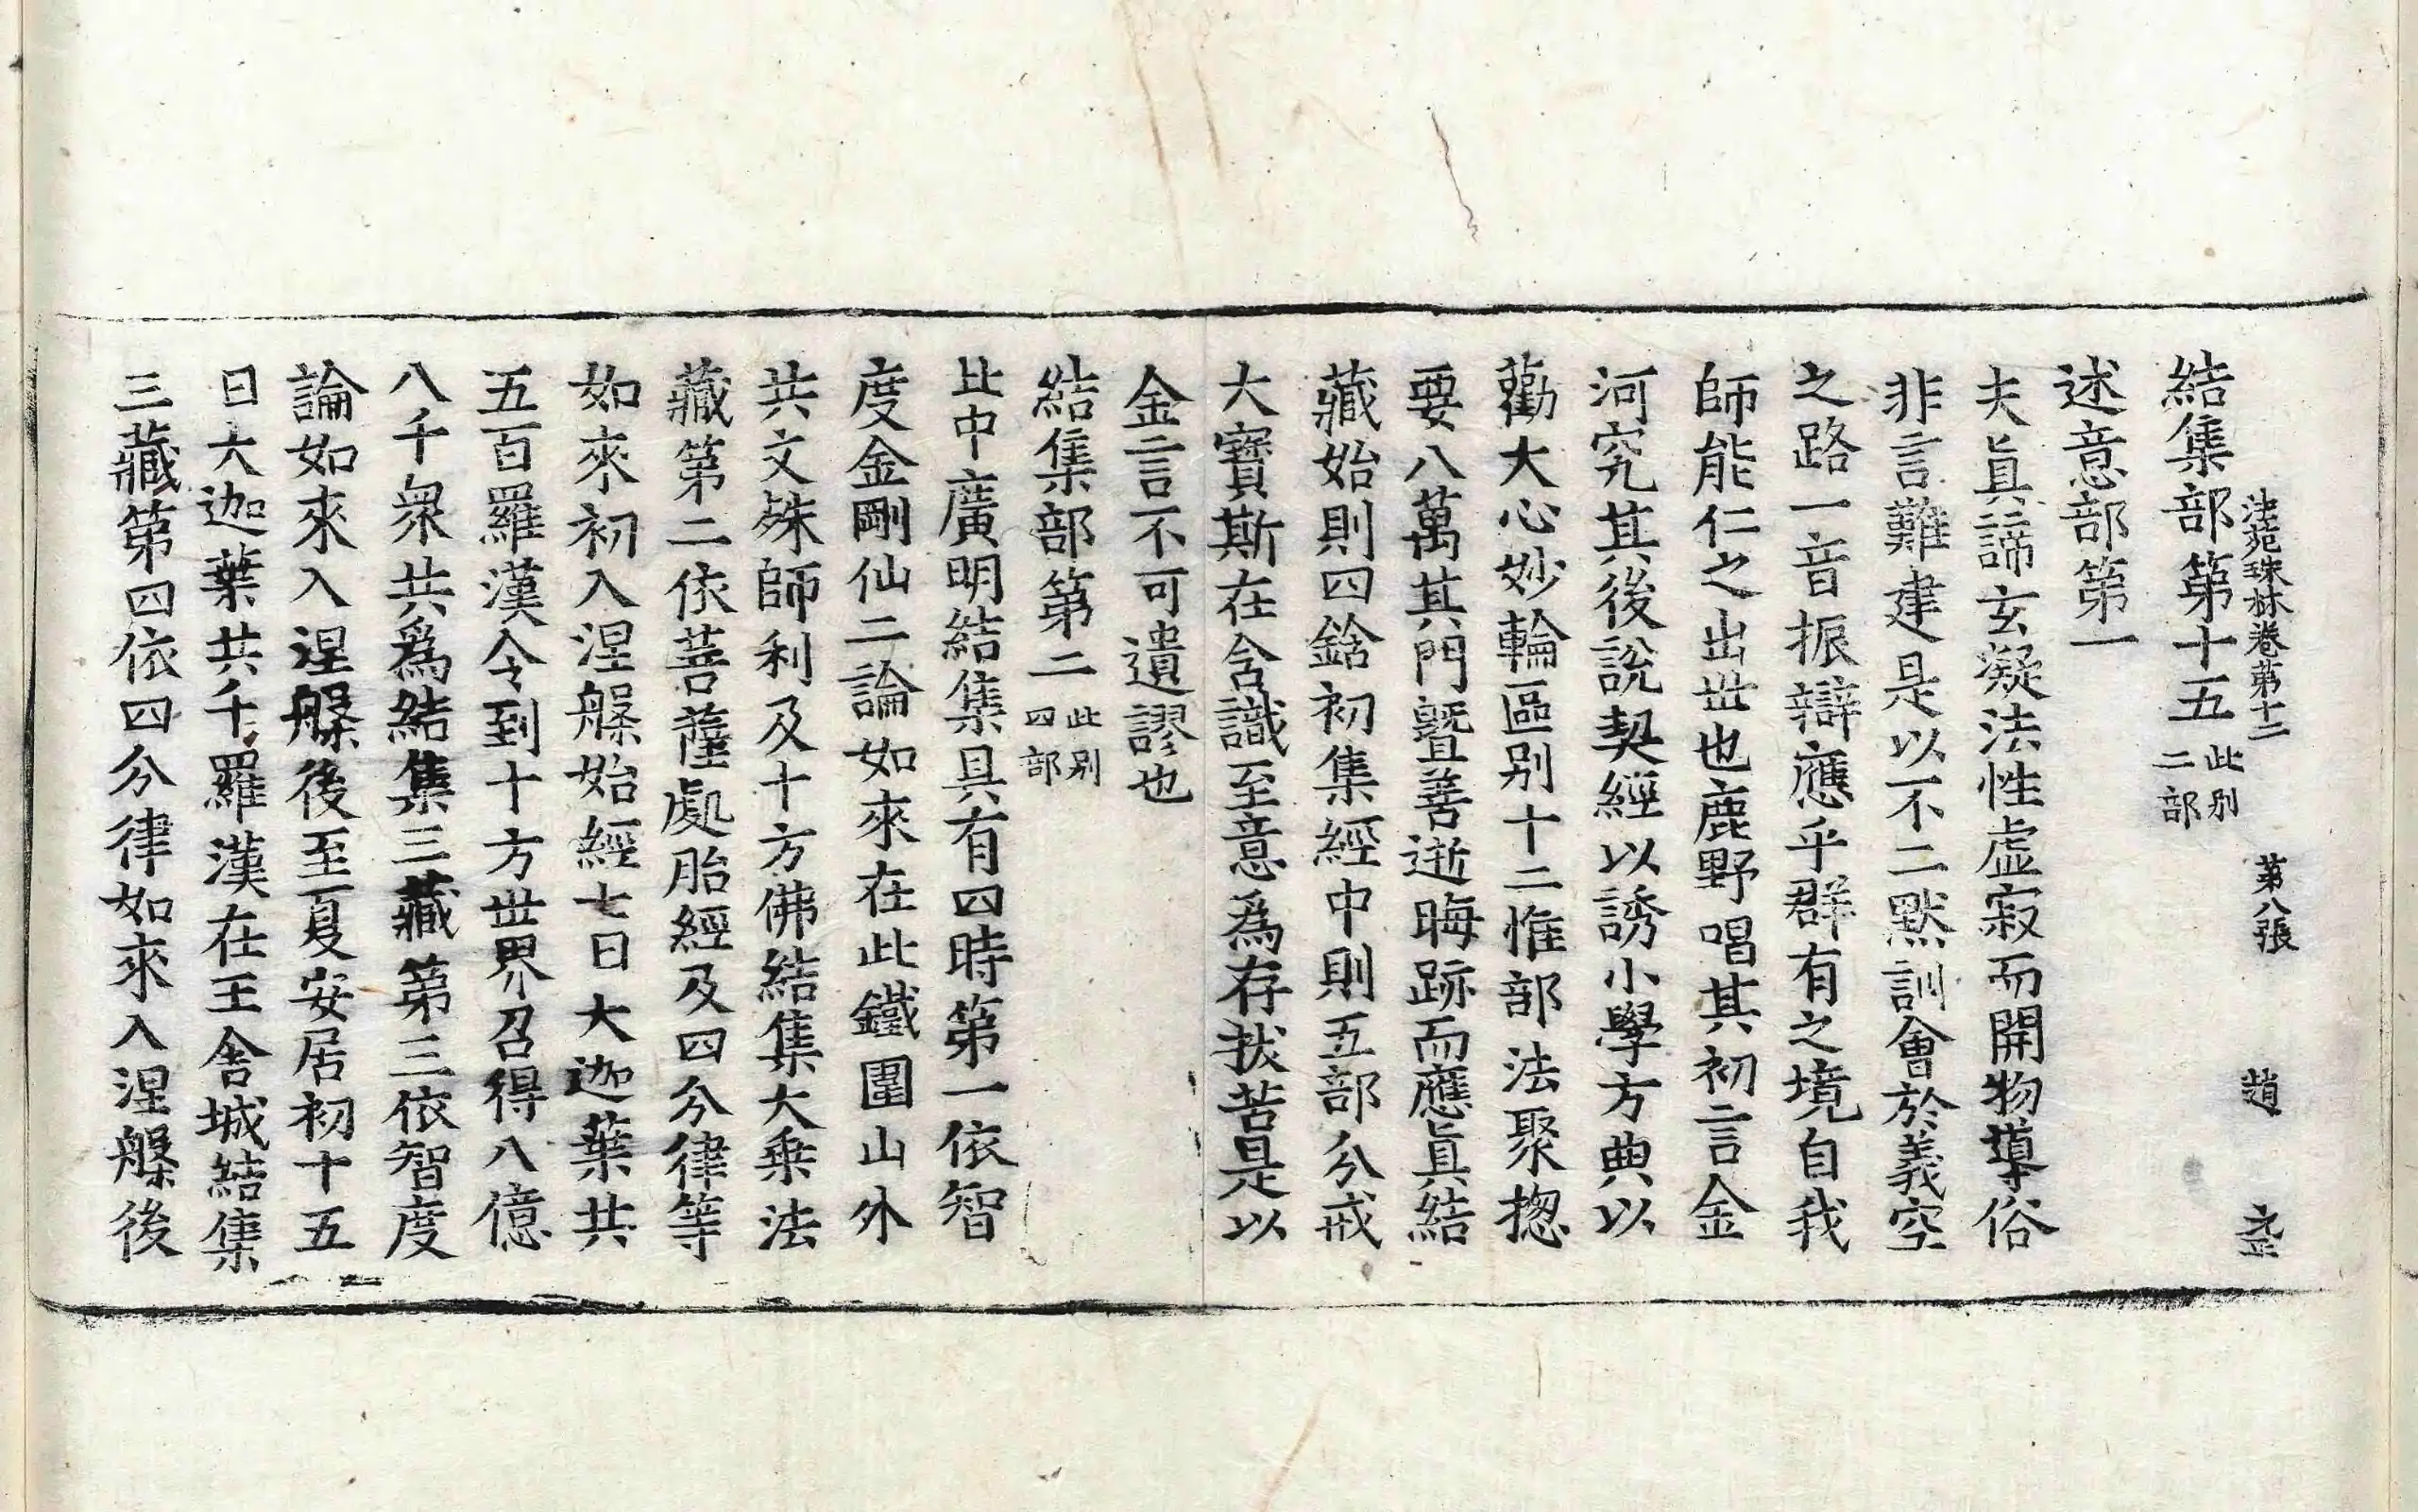 法苑珠林卷第十二 第八張 趙
結集部第十五 此別二部
述意部第一
夫眞諦玄凝法性虛寂而開物導俗
非言難建是以不二默訓會於義空
之路一音振辯應乎群有之境自我
師能仁之出世也鹿野唱其初言金
河究其後說契經以誘小學方典以
勸大心妙輪區別十二惟部法聚揔
要八萬其門曁善逝晦跡而應眞結
藏始則四鋡初集經中則五部分戒
大寶斯在含識至意爲存拔苦是以
金言不可遺謬也
結集部第二 此別四部
此中廣明結集具有四時第一依智
度金剛仙二論如來在此鐵圍山外
共文殊師利及十方佛結集大乘法
藏第二依菩薩處胎經及四分律等
如來初入涅槃始經七日大迦葉共
五百羅漢令到十方世界召得八億
八千衆共爲結集三藏第三依智度
論如來入涅槃後至夏安居初十五
日大迦葉共千羅漢在王舍城結集
三藏第四依四分律如來入涅槃後